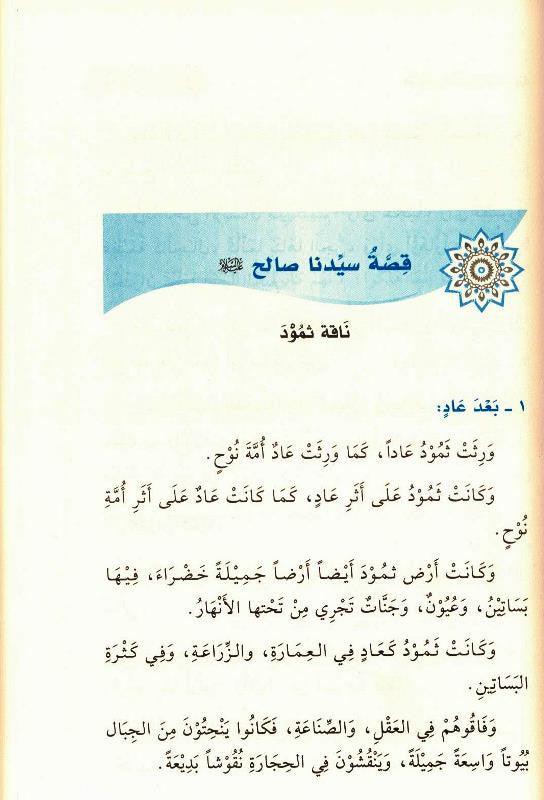 قِصَّةُ سيِّدنا صالح عليه السلام
نَاقة ثمُوْدَ
١ ـ بَعْدَ عَادٍ:
وَرِثَتْ ثَمُوْدُ عَاداً، كَمَا وَرِثَتْ عَادٌ أُمَّةَ نُوْحٍ.
وَكَانَتْ ثَمُوْدُ عَلَى أَثَرِ عَادٍ، كَمَا كَانَتْ عَادٌ عَلَى أَثَرِ أُمَّةِ
نُوْحٍ.
وَكَانَتْ أَرْض ثمُوْدَ أَيْضاً أَرْضاً جَمِيْلَةً خَضْرَاءَ، فِيْهَا
بَسَاتِيْنُ، وَعُيُوْنٌ، وَجَنَّاتٌ تَجْرِي مِنْ تَحْتها الأَنْهَارُ.
وَكَانَتْ ثَمُوْدُ كَعَادٍ فِي العِمَارَةِ، والزِّرَاعَةِ، وَفِي كَثْرَةِ
البَسَاتِينِ.
وَفَاقُوهُمْ فِي العَقْلِ، وَالصِّنَاعَةِ، فَكَانُوا يَنْحِتُوْنَ مِنَ الجِبَال
بُيُوتاً وَاسِعَةً جَمِيْلَةً، وَيَنْقُشُوْنَ فِي الحِجَارَةِ نُقُوْشاً بَدِيْعَةً.